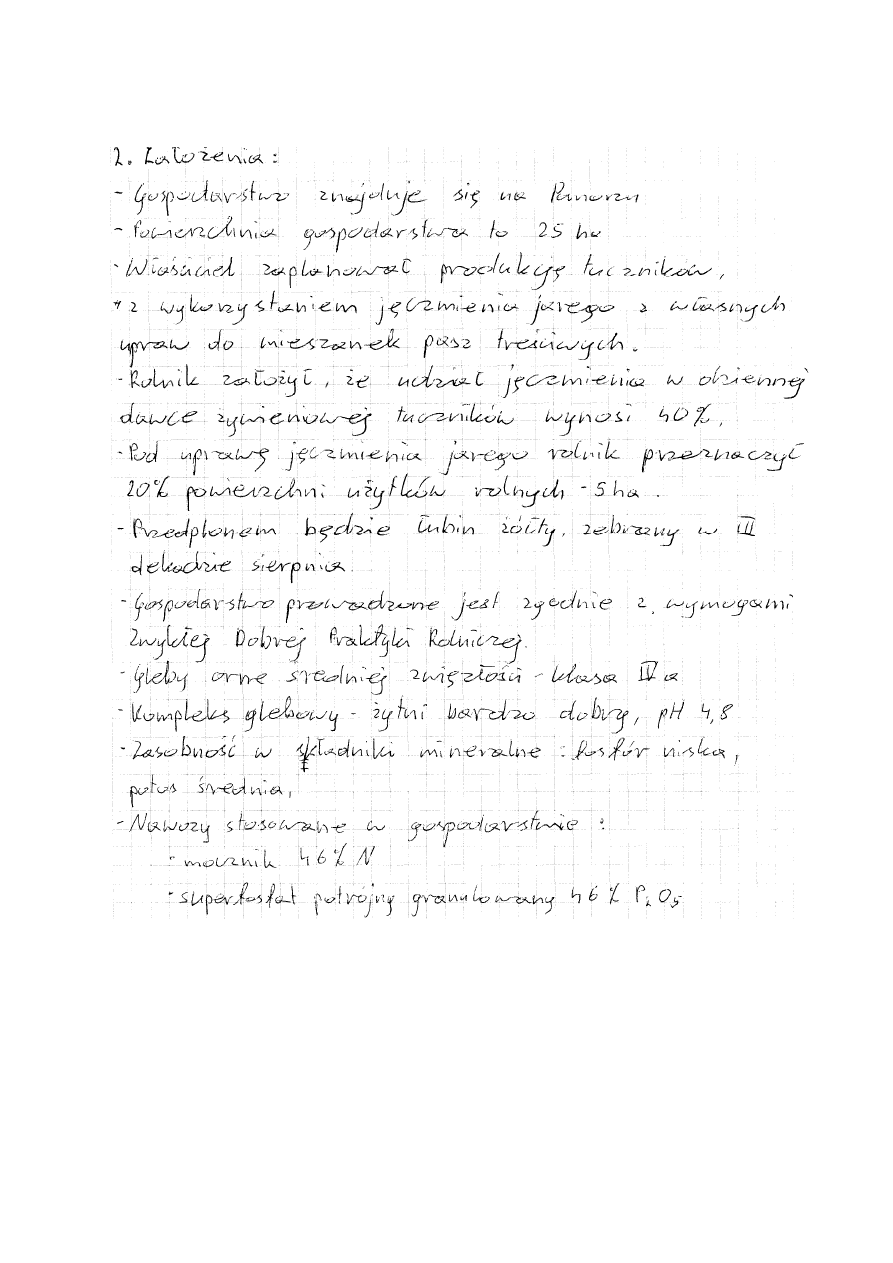 2. Założenia:
- Gospodarstwo znajduje się na Pomorzu
- Powierzchnia gospodarstwa to 25 ha
- Właściciel zaplanował produkcję tuczników,
z wykorzystaniem jęczmienia jarego z własnych
upraw do mieszanek pasz treściwych.
- Rolnik założył, że udział jęczmienia w dziennej
dawce żywieniowej tuczników wynosi 40%,
- Pod uprawę jęczmienia jarego rolnik przeznaczył
20% powierzchni użytków rolnych - 5ha.
- Przedplonem będzie łubin żółty, zebrany w III
dekadzie sierpnia.
- Gospodarstwo prowadzone jest zgodnie z wymogami
Zwykłej Dobrej Praktyki Rolniczej.
- Gleby orne średniej zwięzłości - klasa IV a
- Kompleks glebowy - żytni bardzo dobry, pH 4,8
- Zasobność w składniki mineralne: fosfór niska,
potas średnia,
- Nawozy stosowane w gospodarstwie:
- mocznik 46% N
- superfosfat potrójny granulowany 46% P₂O₅